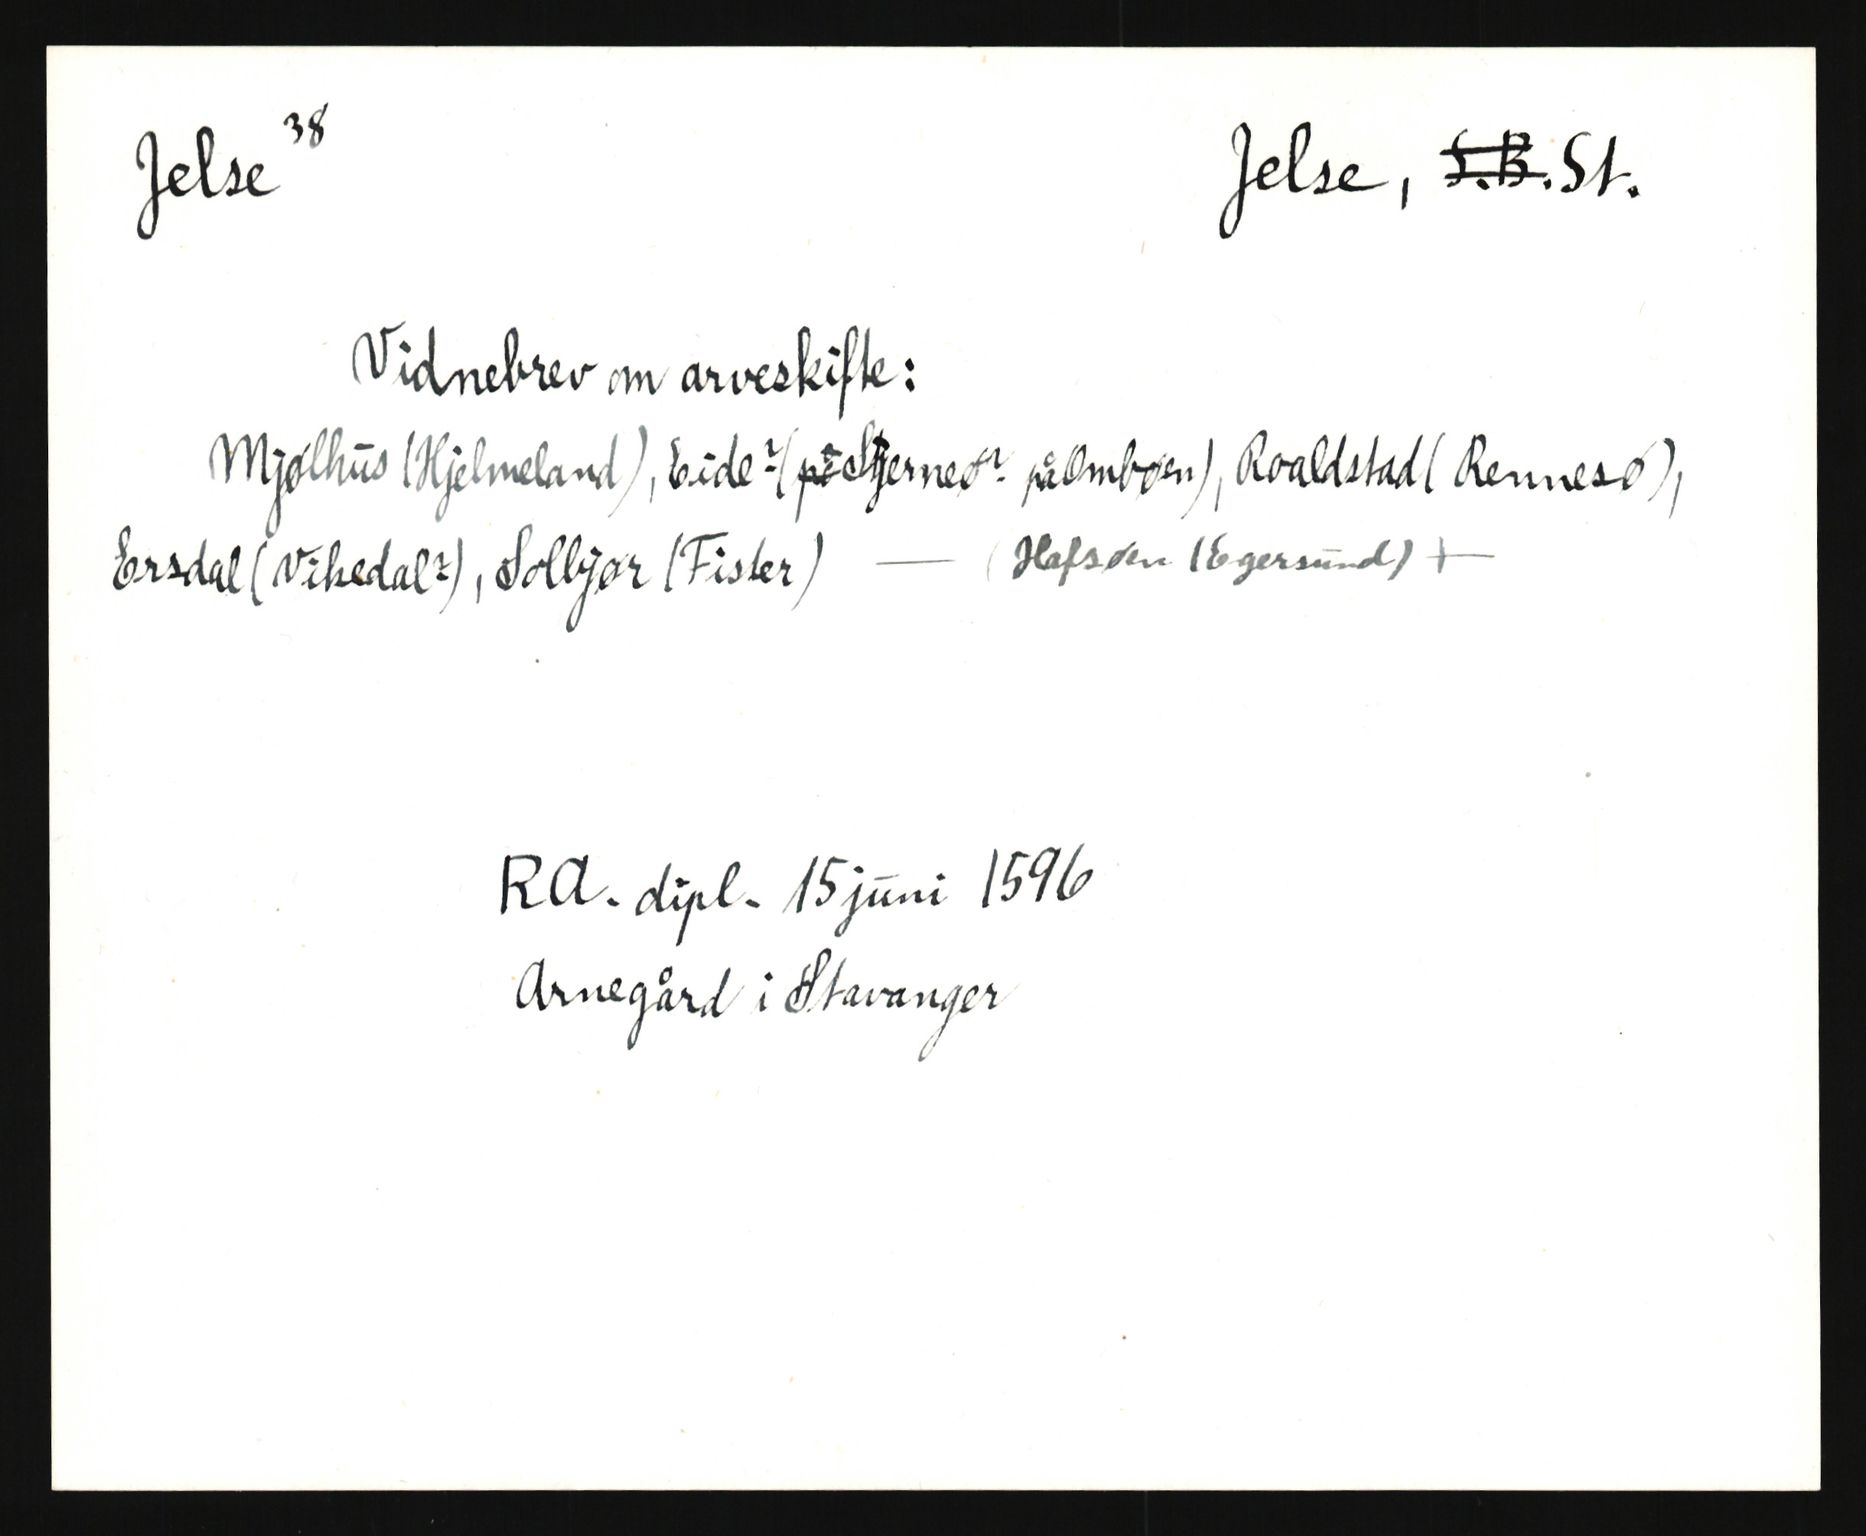 Jelse 38
Jelse, S.B. St.
Vidnebrev om arveskifte:
Mjølhus (Hjelmeland), Eide? (på Stjernerø? på Ombøen), Roaldstad (Rennesø),
Ersdal (Vikedal?), Solbjør (Fister) — (Hafsøen (Egersund) +
RA. dipl. 15 juni 1596
Arnegård i Stavanger